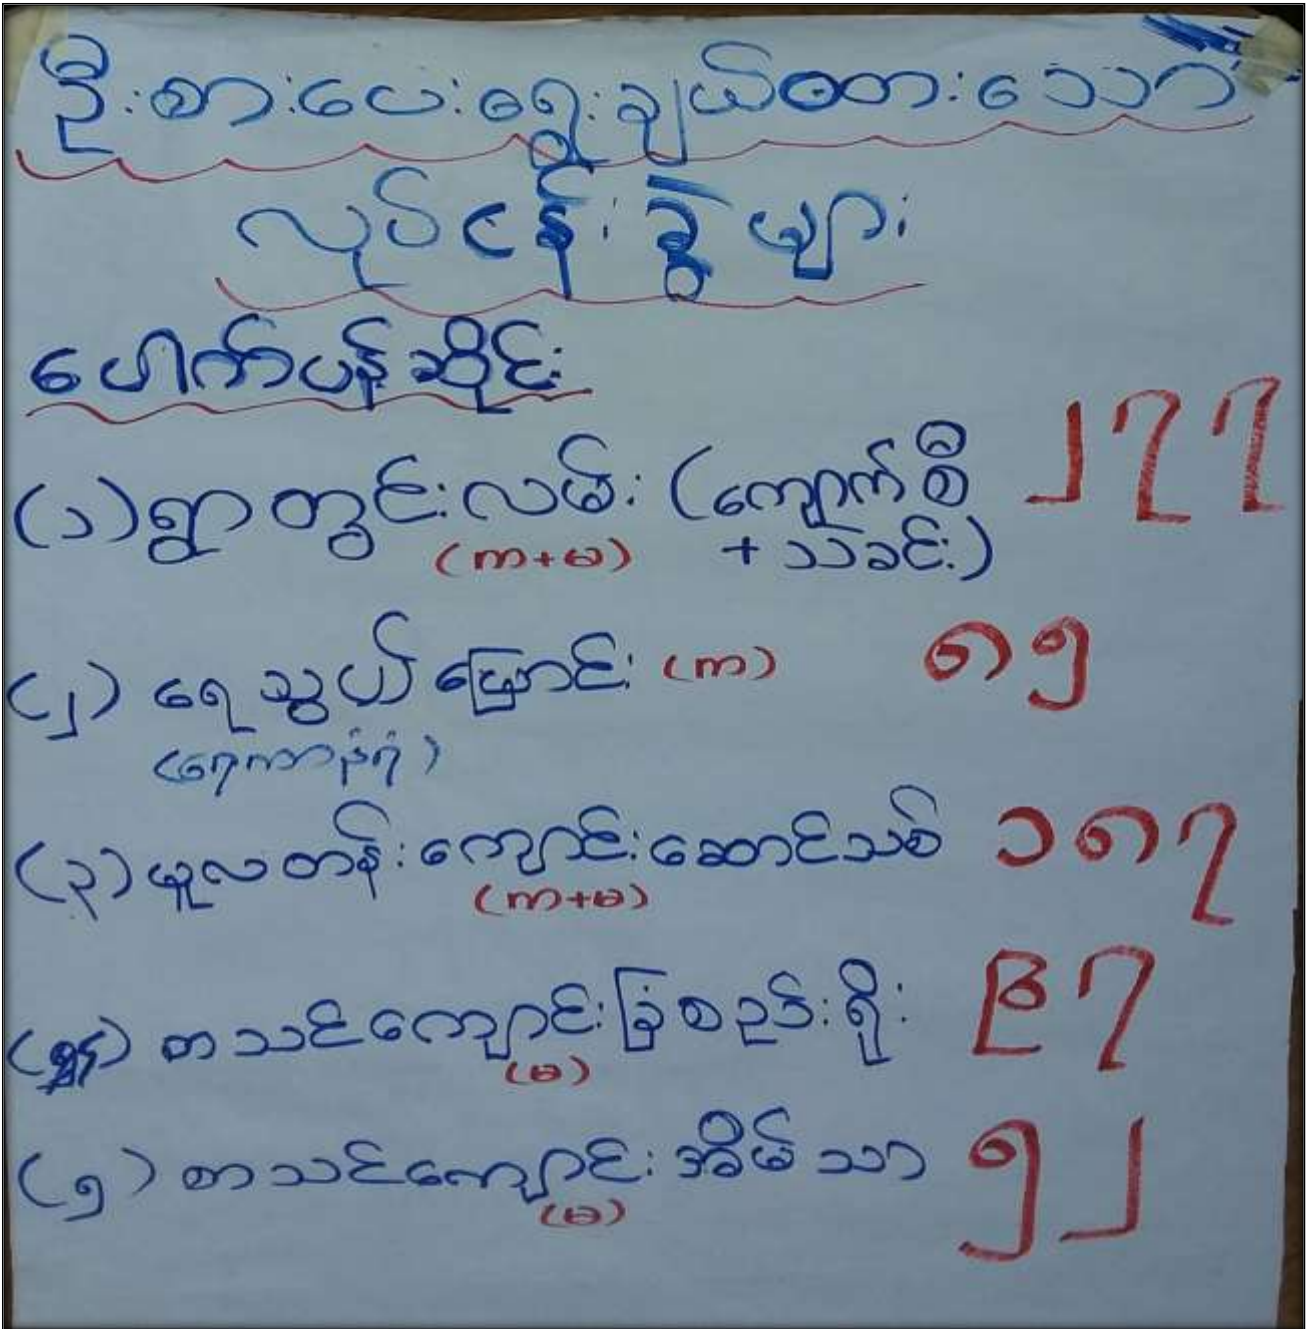 ဦးစားပေးရွေးချယ်ထားသော
လုပ်ငန်းခွဲများ
ပေါက်ပန်ဆိုင်း
(၁) ရွာတွင်းလမ်း (ကျောက်စီ ၂၇၇
(က+မ) + သဲခင်း)
(၂) ရေသွယ်မြောင်း (က) ၈၅
(ရေကာနံရံ)
(၃) မူလတန်းကျောင်းဆောင်သစ် ၁၈၇
(က+မ)
(၄) စာသင်ကျောင်းခြံစည်းရိုး ၉၇
(မ)
(၅) စာသင်ကျောင်းအိမ်သာ ၅၂
(မ)